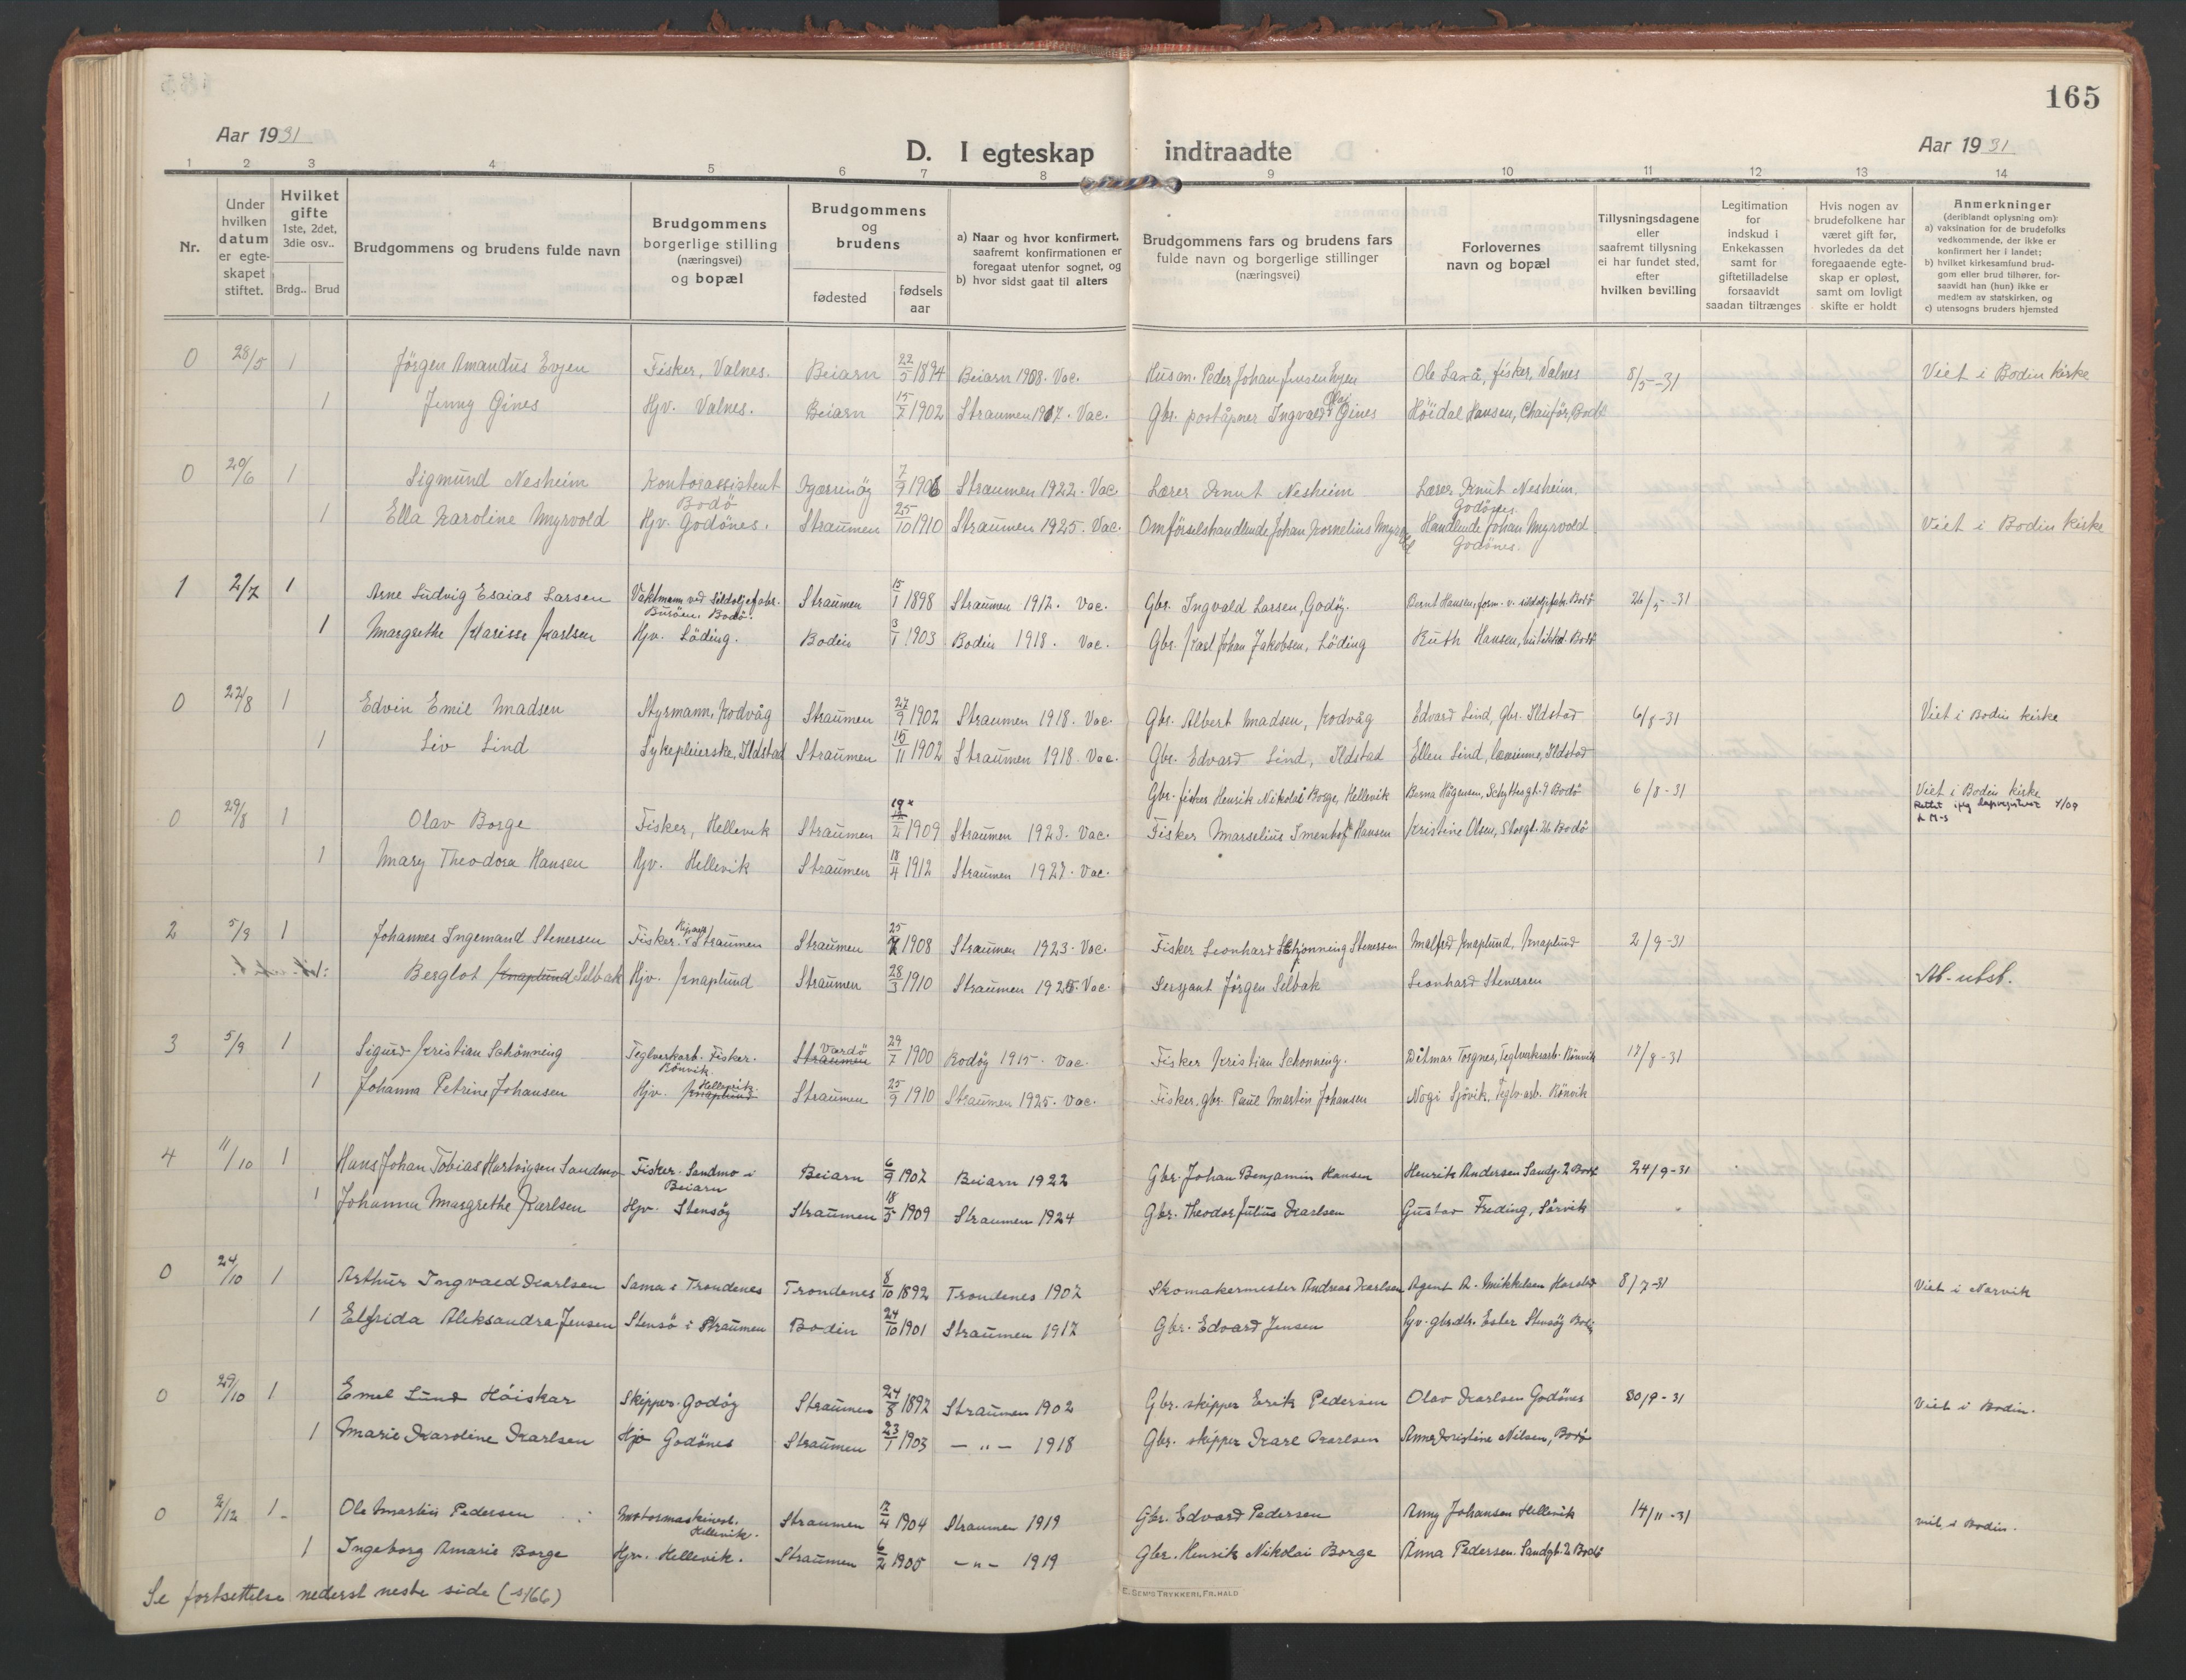 165
Aar 1931
D. I egteskap indtraadte
Aar 1931
1 2 3 4 5 6 7 8 9 10 11 12 13 14
Nr.
Under hvilken datum er egte-skapet stiftet.
Hvilket gifte 1ste, 2det, 3die osv..
Brdg.. Brud
Brudgommens og brudens fulde navn
Brudgommens borgerlige stilling (næringsvei) og bopæl
Brudgommens og brudens
fødested
fødsels aar
a) Naar og hvor konfirmert, saafremt konfirmationen er foregaat utenfor sognet, og
b) hvor sidst gaat til alters
Brudgommens fars og brudens fars fulde navn og borgerlige stillinger (næringsvei)
Forlovernes navn og bopæl
Tillysningsdagene eller saafremt tillysning ei har fundet sted, efter hvilken bevilling
Legitimation for indskud i Enkekassen samt for giftetilladelse forsaavidt saadan tiltrænges
Hvis nogen av brudefolkene har været gift før, hvorledes da det foregaaende egte-skap er opløst, samt om lovligt skifte er holdt
Anmerkninger (deriblandt oplysning om):
a) vaksination for de brudefolks vedkommende, der ikke er konfirmert her i landet;
b) hvilket kirkesamfund brud-gom eller brud tilhører, for-saavidt han (hun) ikke er medlem av statskirken, og
c) utensogns bruders hjemsted
0 28/5 1 Jørgen Amandus Evjen Fisker, Valnes. Beiarn 22/5 1894 Beiarn 1908. Vac. Husm. Peder Johan Jensen Evjen Ole Laxå, fisker, Valnes 8/5-31 Viet i Bodin kirke
1 Jenny Gines Hjv. Valnes. Beiarn 15/7 1902 Straumen 1917. Vac. Gbr. poståpner Ingvald Gines Höidal Hansen, Chauför, Bodö
0 20/6 1 Sigmund Nesheim Kontorassistent Bodö Kjærringøy 7/9 1906 Straumen 1922. Vac. Lærer Knut Nesheim Lærer Knut Nesheim, Godönes.
1 Ella Karoline Myrvold Hjv. Godönes. Straumen 25/10 1910 Straumen 1925. Vac. Omförselshandlende Johan Kornelius Myrvold Handlende Johan Myrvold Godönes. Viet i Bodin kirke
1 2/7 1 Arne Ludvig Esaias Larsen Vaktmann ved Sildoljefabr. Burøen. Bodö. Straumen 15/1 1898 Straumen 1912. Vac. Gbr. Ingvald Larsen, Godöy. Bernt Hansen, form. v. sildoljefabr. Bodö 26/5-31
1 Margrethe Klarisse Karlsen Hjv. Löding. Bodin 3/1 1903 Bodin 1918. Vac. Gbr. Karl Johan Jakobsen, Löding Ruth Hansen, Bodö
0 22/8 1 Edvin Emil Madsen Styrmann, Kodvåg Straumen 27/9 1902 Straumen 1918. Vac. Gbr. Albert Madsen, Kodvåg Edvard Lind, Gbr. Ildstad 6/8-31 Viet i Bodin kirke
1 Liv Lind Sykepleierske, Ildstad Straumen 15/11 1902 Straumen 1918. Vac. Gbr. Edvard Lind, Ildstad Ellen Lind, lærerinne, Ildstad
Gbr. fisker Henrik Nikolai Borge, Hellevik Berna Hågensen, Schyttesgt. 9 Bodö 6/8-31 Viet i Bodin kirke
0 29/8 1 Olav Borge Fisker, Hellevik Straumen 19/2 1909 Straumen 1923. Vac. Fisker Marselius Imenhof Hansen Kristine Olsen, Storgt. 26 Bodö
1 Mary Theodora Hansen Hjv. Hellevik Straumen 18/4 1912 Straumen 1927. Vac.
2 5/9 1 Johannes Ingemand Stenersen Fisker. Straumen Straumen 25/7 1908 Straumen 1923. Vac. Fisker Leonhard Schjonning Stenersen Malfred Knaplund, Knaplund 2/9-31
Berglot Knaplund Selbak Hjv. Knaplund Straumen 28/3 1910 Straumen 1925. Vac. Sersjant Jörgen Selbak Leonhard Stenersen Ab-utst.
3 5/9 1 Sigurd Kristian Schönning Teglverkarb. Fisker. Rönvik. Straumen Vardö 29/7 1900 Bodöy 1915. Vac. Fisker Kristian Schonning. Ditmar Torgnes, Teglverksarb. Rönvik 17/8-31
1 Johanna Petrine Johansen Hjv. Knaplund Hellevik. Straumen 25/9 1910 Straumen 1925. Vac. Fisker, gbr. Paul Martin Johansen Nogi Sjövik, Teglv.arb. Rönvik
4 11/10 1 Hans Johan Tobias Hartvigsen Sandmo Fisker. Sandmo i Beiarn Beiarn 6/9 1902 Beiarn 1922 Gbr. Johan Benjamin Hansen Henrik Andersen Sandg. 2 Bodö 24/9-31
1 Johanna Margrethe Karlsen Hjv. Stensöy Straumen 18/5 1909 Straumen 1924 Gbr. Theodor Julius Karlsen Gustav Freding, Sörvik
0 24/10 1 Arthur Ingvald Karlsen Sama i Trondenes Trondenes 8/10 1892 Trondenes 1907 Skomakermester Andreas Karlsen Agent A. Mikkelsen Harstad 8/7-31 Viet i Narvik
1 Elfrida Aleksandra Jensen Stensö i Straumen Bodin 24/10 1901 Straumen 1917 Gbr. Edvard Jensen Hjv. gbrdtr. Ester Stensöy Bodin
0 29/10 1 Emil Lund Höiskar Skipper. Godöy Straumen 24/8 1892 Straumen 1902 Gbr. skipper Erik Pedersen Olav Karlsen Godönes 30/9-31 Viet i Bodin.
1 Marie Karoline Karlsen Hjv Godönes Straumen 23/1 1903 — „ — 1918 Gbr. skipper Karl Karlsen Anna Kristine Nilsen, Bodö
0 2/12 1 Ole Martin Pedersen Motormaskinpas. Hellevik. Straumen 17/4 1904 Straumen 1919 Gbr. Edvard Pedersen Anny Johansen Hellevik 14/11-31 viet i Bodin.
1 Ingeborg Amarie Borge Hjv. Hellevik. Straumen 6/2 1905 — „ — 1919 Gbr. Henrik Nikolai Borge Anna Pedersen. Sandgt. 2 Bodö
Se fortsettelse nederst neste side (s166)
E. SEM'S TRYKKERI, FR.HALD